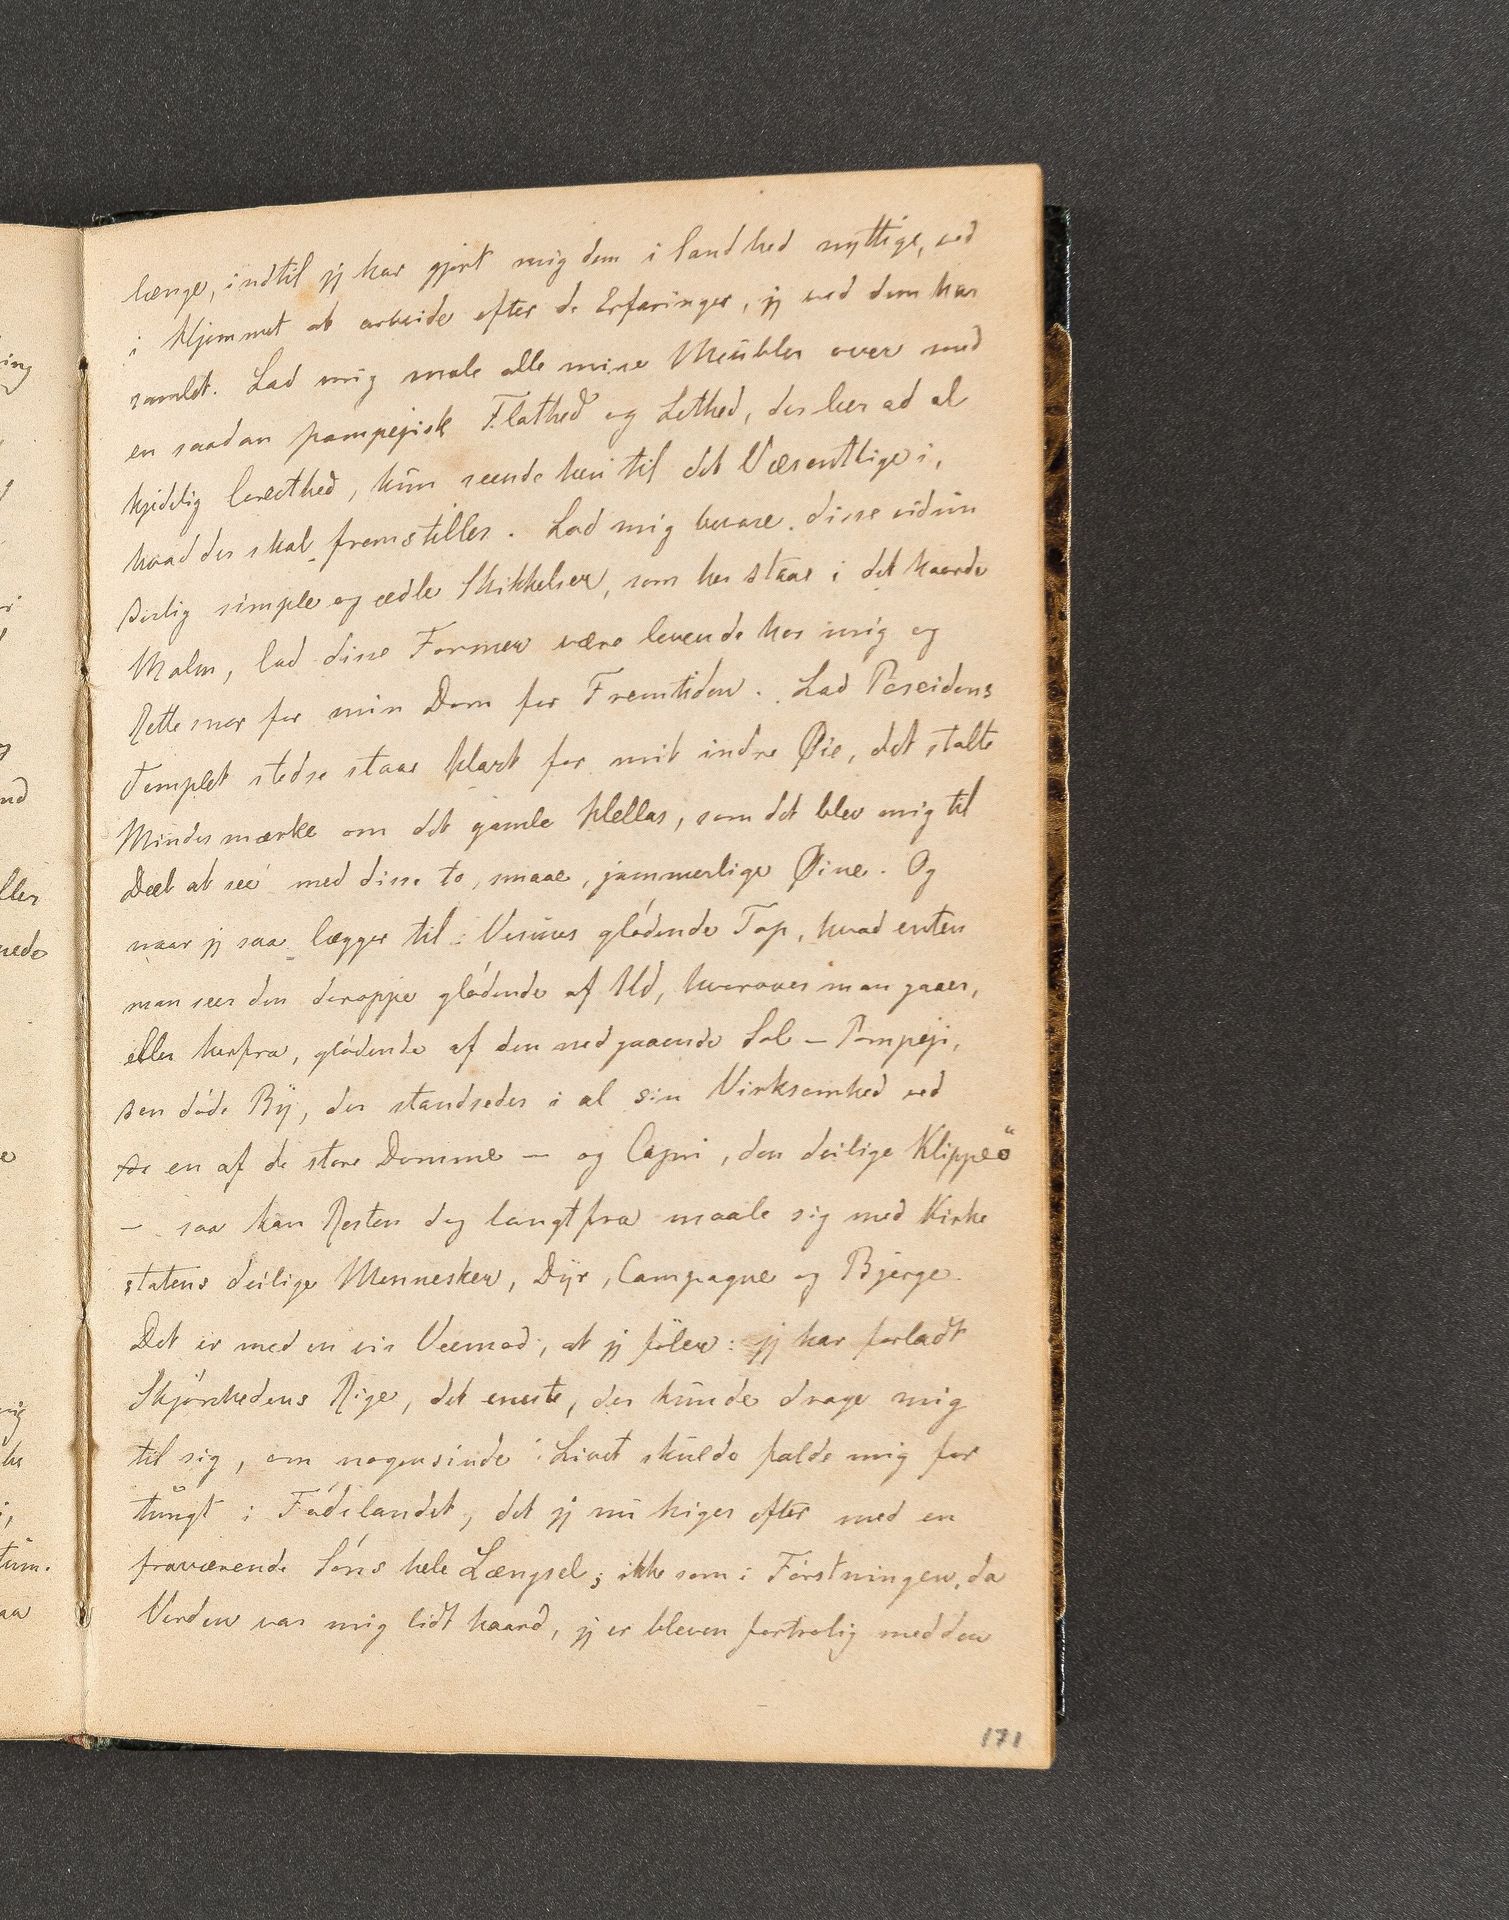 længe, indtil jeg har gjort mig dem i Sandhed nyttige, ved
i Hjemmet at arbeide efter de Erfaringer, jeg ved dem har
samlet. Lad mig male alle mine Meubler over med
en saadan pompejisk Flothed og Lethed, der leer ad al
kjedelig Correcthed, kun seende hen til det Væsentlige i,
hvad der skal fremstilles. Lad mig bevare disse vidun
derlig simple og ædle Skikkelser, som her staae i det haarde
Malm, lad disse Former være levende hos mig og
Rettesnor for min Dom for Fremtiden. Lad Poseidons
Templet stedse staae klart for mit indre Øie, det stolte
Mindesmærke om det gamle Hellas, som det blev mig til
Deel at see med disse to, smaae, jammerlige Øine. Og
naar jeg saa lægger til: Vesuvs glødende Top, hvad enten
man seer den deroppe glødende af Ild, hvorover man gaaer,
eller herfra, glødende af den nedgaaende Sol — Pompeji,
den døde By, der standsedes i al sin Virksomhed ved
en af de store Domme — og Capri, den deilige Klippeö
— saa kan Resten dog langtfra maale sig med Kirke
statens deilige Mennesker, Dyr, Campagne og Bjerge.
Det er med en vis Veemod, at jeg föler: jeg har forladt
Skjönhedens Rige, det eneste, der kunde drage mig
til sig, om nogensinde Livet skulde falde mig for
tungt i Fødelandet, det jeg nu higer efter med en
fraværende Söns hele Længsel; ikke som i Förstningen, da
Verden var mig lidt haard, jeg er bleven fortrolig med den
171